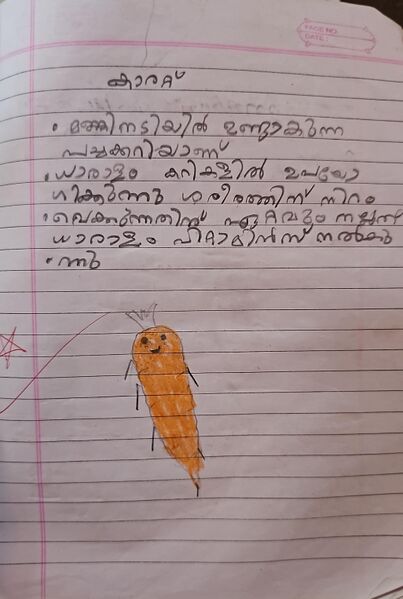 PAGE NO.
DATE:
കാരറ്റ്
• മണ്ണിനടിയിൽ ഉണ്ടാകുന്ന
പച്ചക്കറിയാണ്
• ധാരാളം കറികളിൽ ഉപയോ
ഗിക്കുന്നു ശരീരത്തിന് നിറം
• വെക്കുന്നതിന് ഏറ്റവും നല്ലത്
ധാരാളം വിറ്റാമിൻസ് നൽകു
• ന്നു